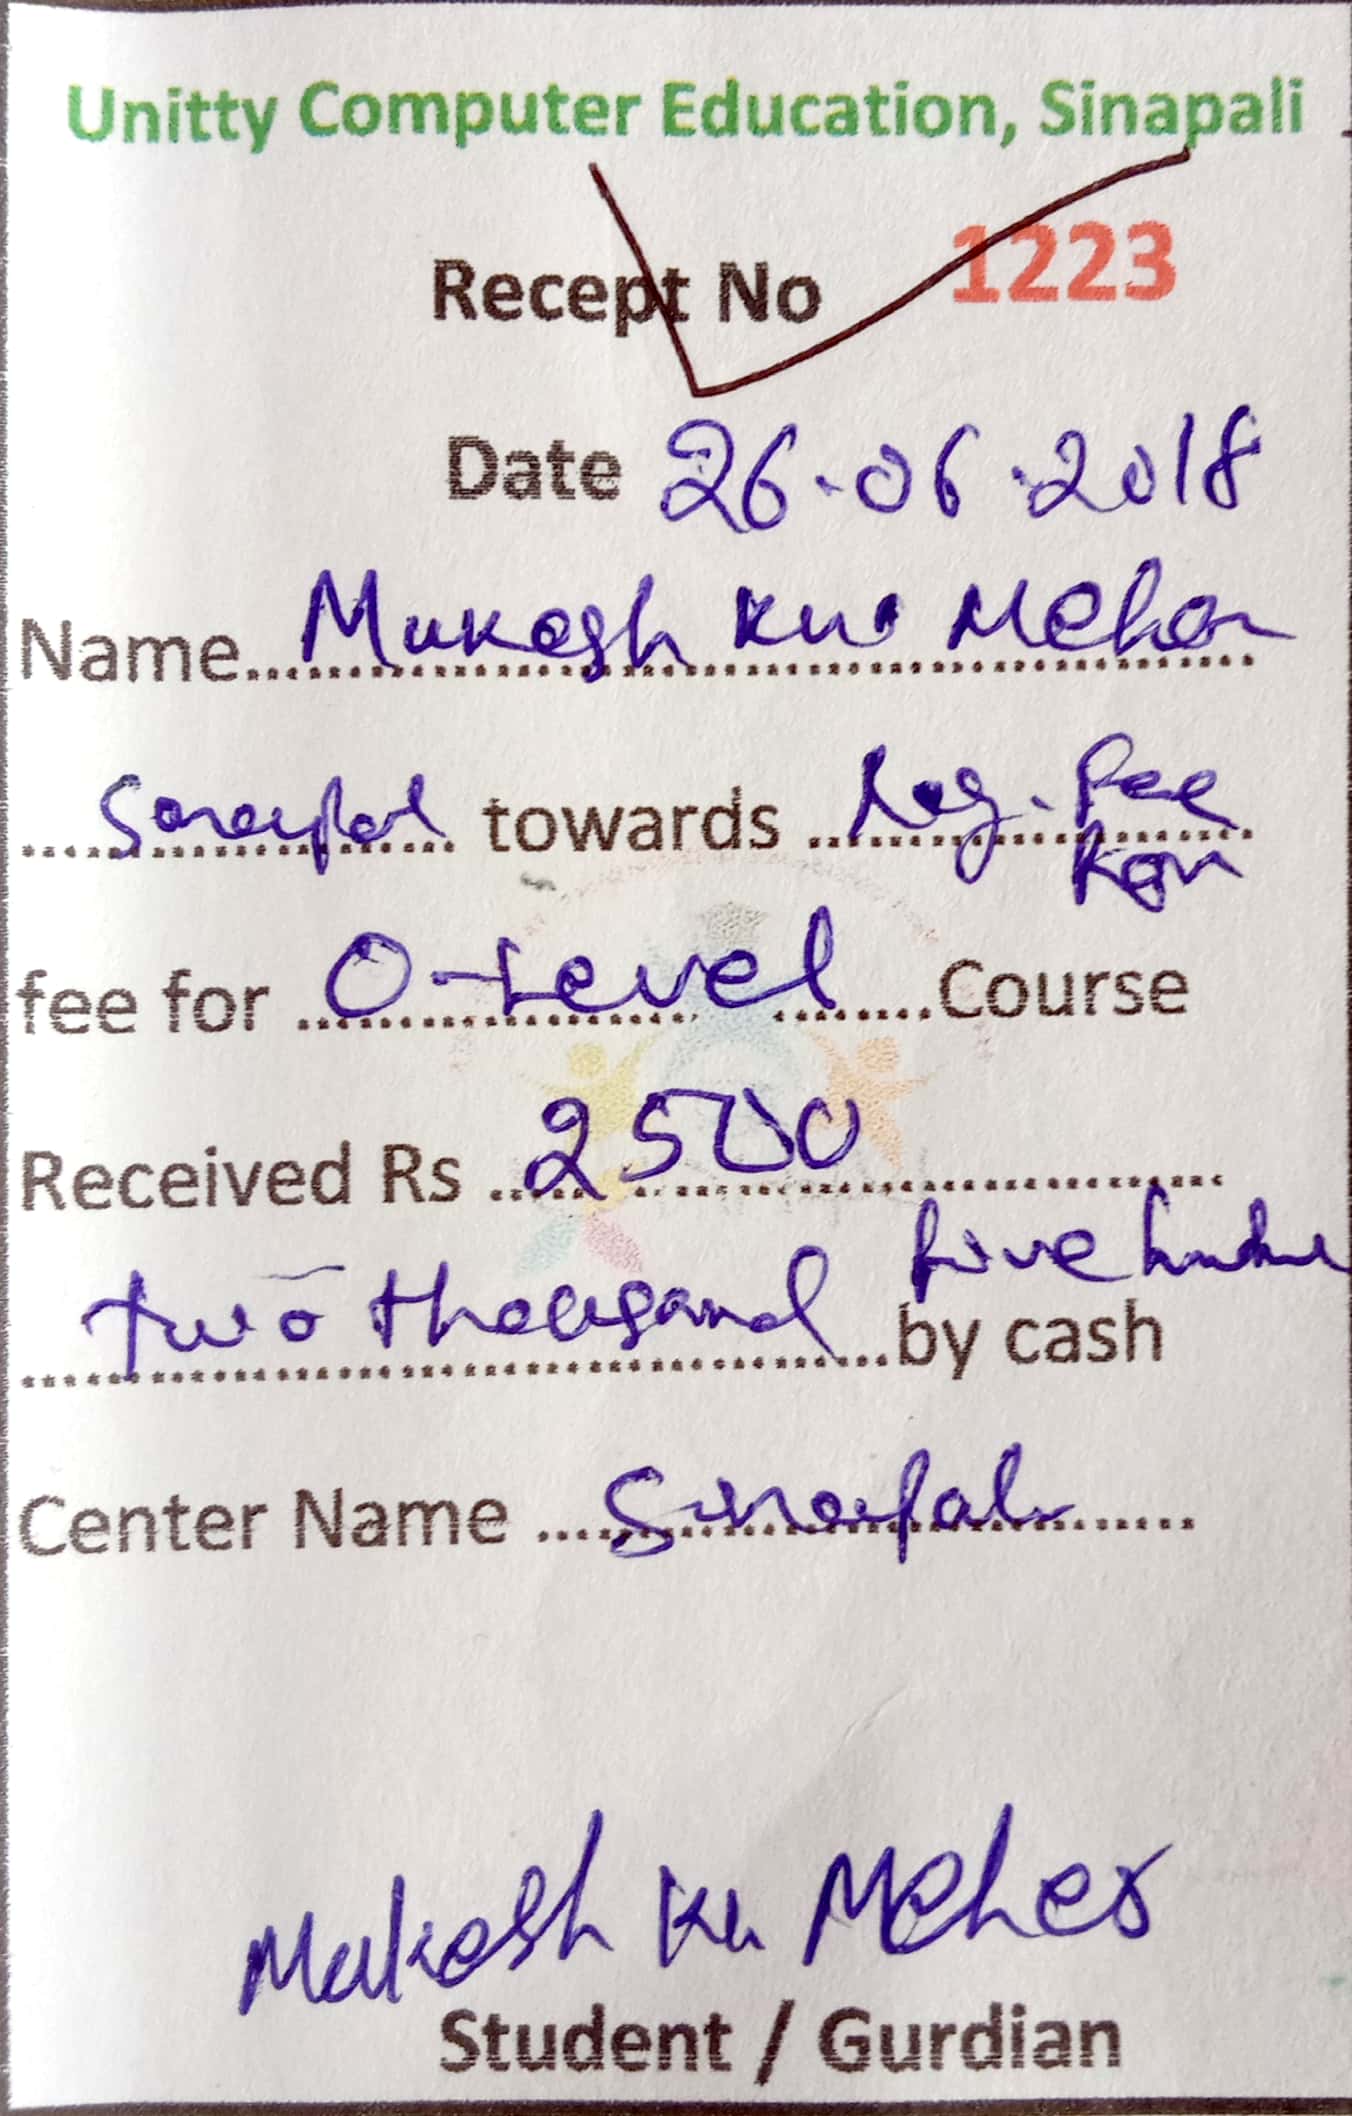 Unitty Computer Education, Sinapali
Recept No 1223
Date 26.06.2018
Name.......Mukesh Ku. Meher
towards Reg. fee
fee for O-Level Course
Received Rs 2500
two thousand five
by cash
Center Name Sinapali
Mukesh Ku Meher
Student / Gurdian